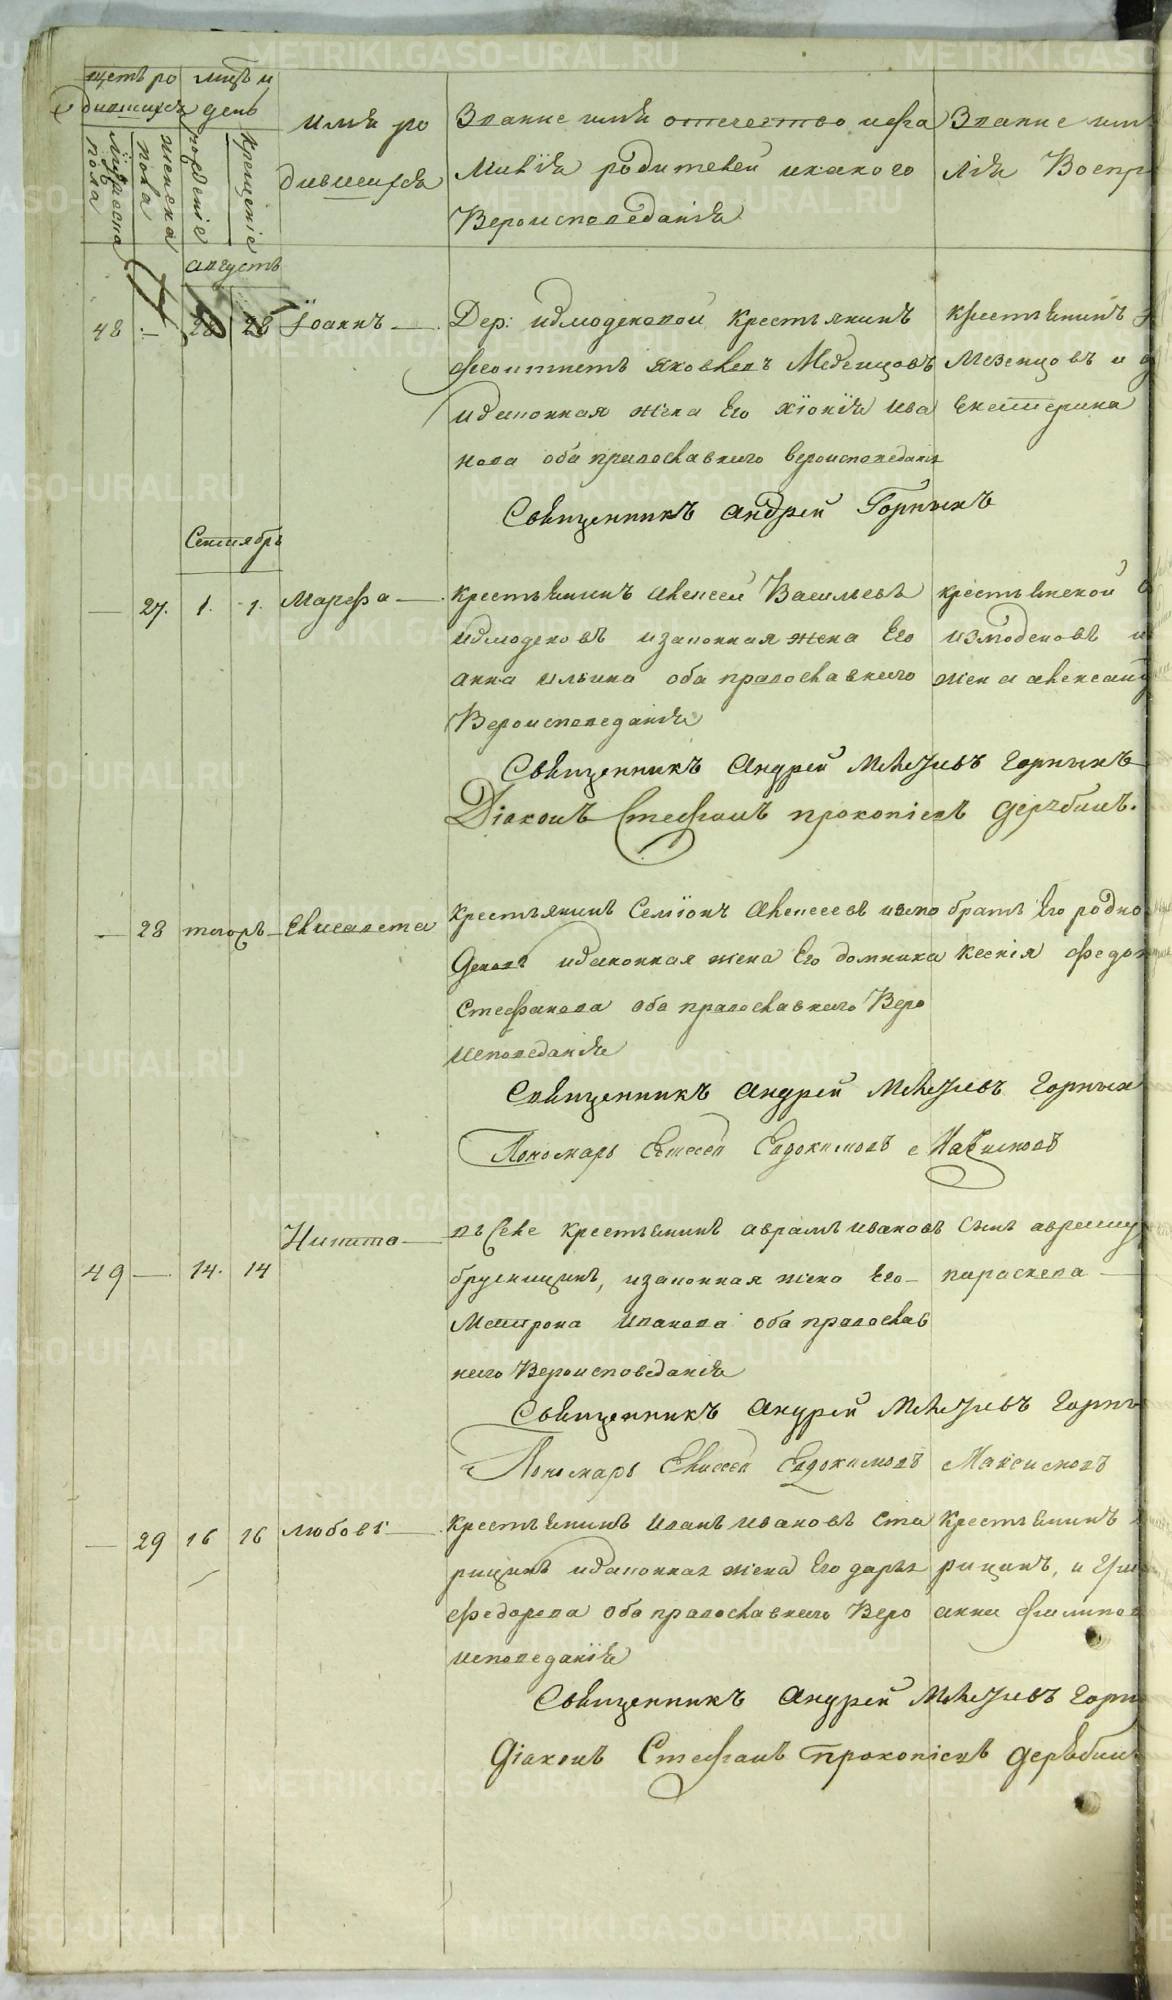 щетъ ро
дившихся
мцъ и
день
мужеска
пола
женска
пола
рожденіе
крещеніе
имя ро
дившихся
Званіе имя отечество и фа
милія родителей и какого
Вероисповеданія
Званіе им
лія Воспр
августъ
48 28 28 Іоаннъ
Дер: измоденовой крестьянинъ
Феоктистъ Яковлевъ Мезенцовъ
и законная жена Его Хіонія Ива
нова оба православнаго вероисповеданія
крестьянинъ
Мезенцовъ и
Екатерина
Священникъ Андрей Горныхъ
Сентябрь
27. 1. 1. Марфа
крестьянинъ Алексей Васильевъ
измоденовъ и законная жена Его
анна ильина оба православнаго
Вероисповеданія
крестьянской
измоденовъ и
жена александ
Священникъ Андрей Мокеевъ Горныхъ
Діаконъ Стефанъ Прокопіевъ Дерябинъ.
28 тогожъ Елисавета
крестьянинъ Семіонъ Алексеевъ измо
деновъ и законная жена Его домника
Стефанова оба православнаго Веро
исповеданія
братъ Его родно
ксенія федо
Священникъ Андрей Мокеевъ Горных
Пономарь Елисей Евдокимовъ Максимовъ
49 14. 14 Никита
въ Селе крестьянинъ аврамъ ивановъ
брусницинъ, и законная жена Его
Матрона Иванова оба православ
наго Вероисповеданія
Сынъ
параскева
Священникъ Андрей Мокеевъ Горны
Пономарь Елисей Евдокимовъ Максимовъ
29 16 16 любовь
крестьянинъ Иванъ ивановъ Ста
рицинъ и законная жена Его дарья
федорова оба православнаго Веро
исповеданія
крестьянинъ
рицинъ, и
анна филипов
Священникъ Андрей Мокеевъ Горн
Діаконъ Стефанъ Прокопіевъ Дерябин
METRIKI.GASO-URAL.RU